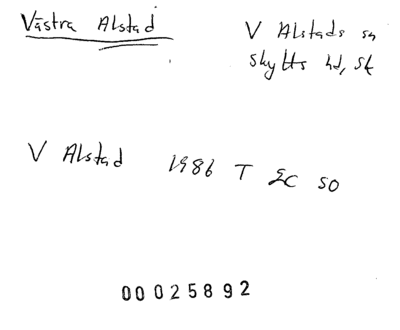 Västra Alstad
V Alstads sn
Skytts hd, Sk
V Alstad 1986 T EC SO
00 025892